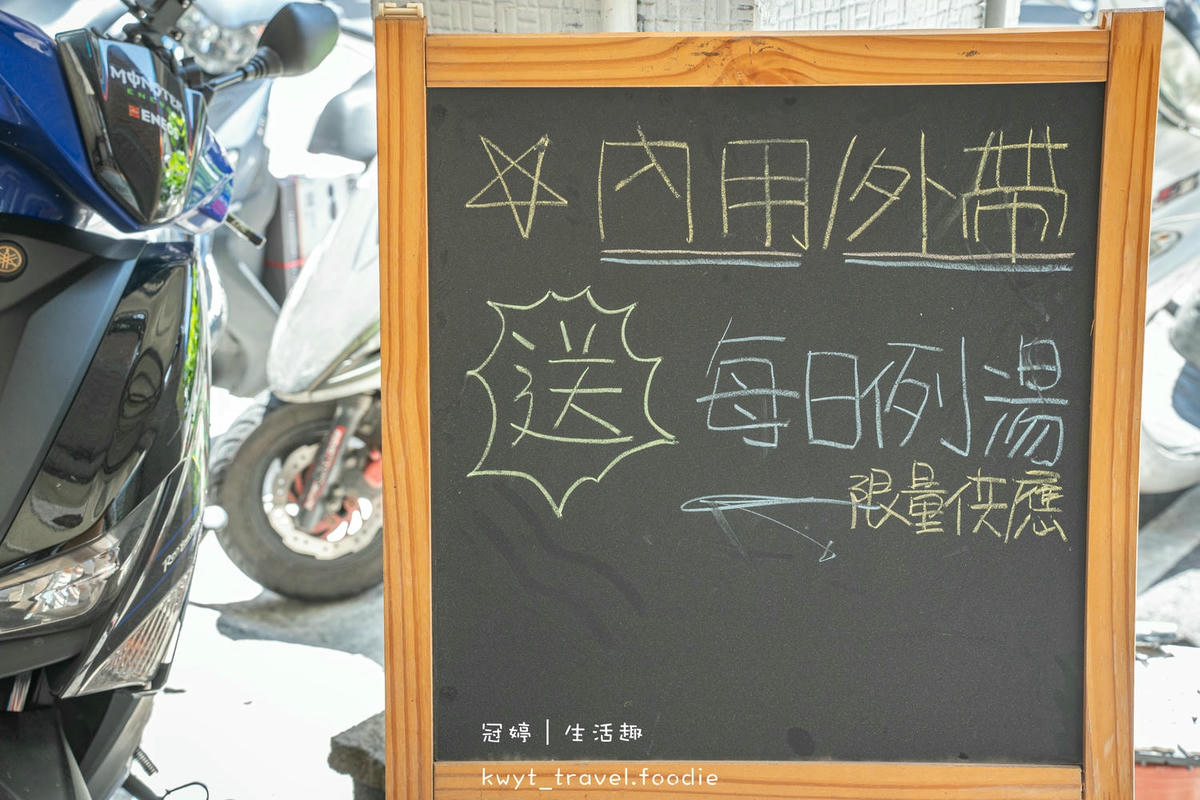 MONSTER
ENERGY
ENEOS
☆內用/外帶
送 每日例湯
限量供應
冠婷 | 生活趣
kwyt_travel.foodie